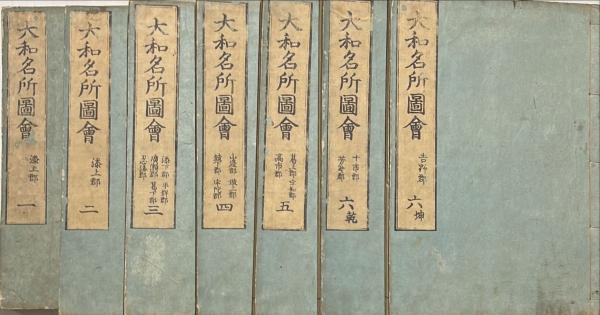 大和名所圖會
添上郡
一
大和名所圖會
添上郡
二
大和名所圖會
添下郡 平群郡
廣瀬郡 葛下郡
忍海郡
三
大和名所圖會
山邊郡 城上郡
城下郡 宇陀郡
四
大和名所圖會
葛上郡 宇智郡
高市郡
五
大和名所圖會
十市郡
芳野郡
六乾
大和名所圖會
吉野郡
六坤